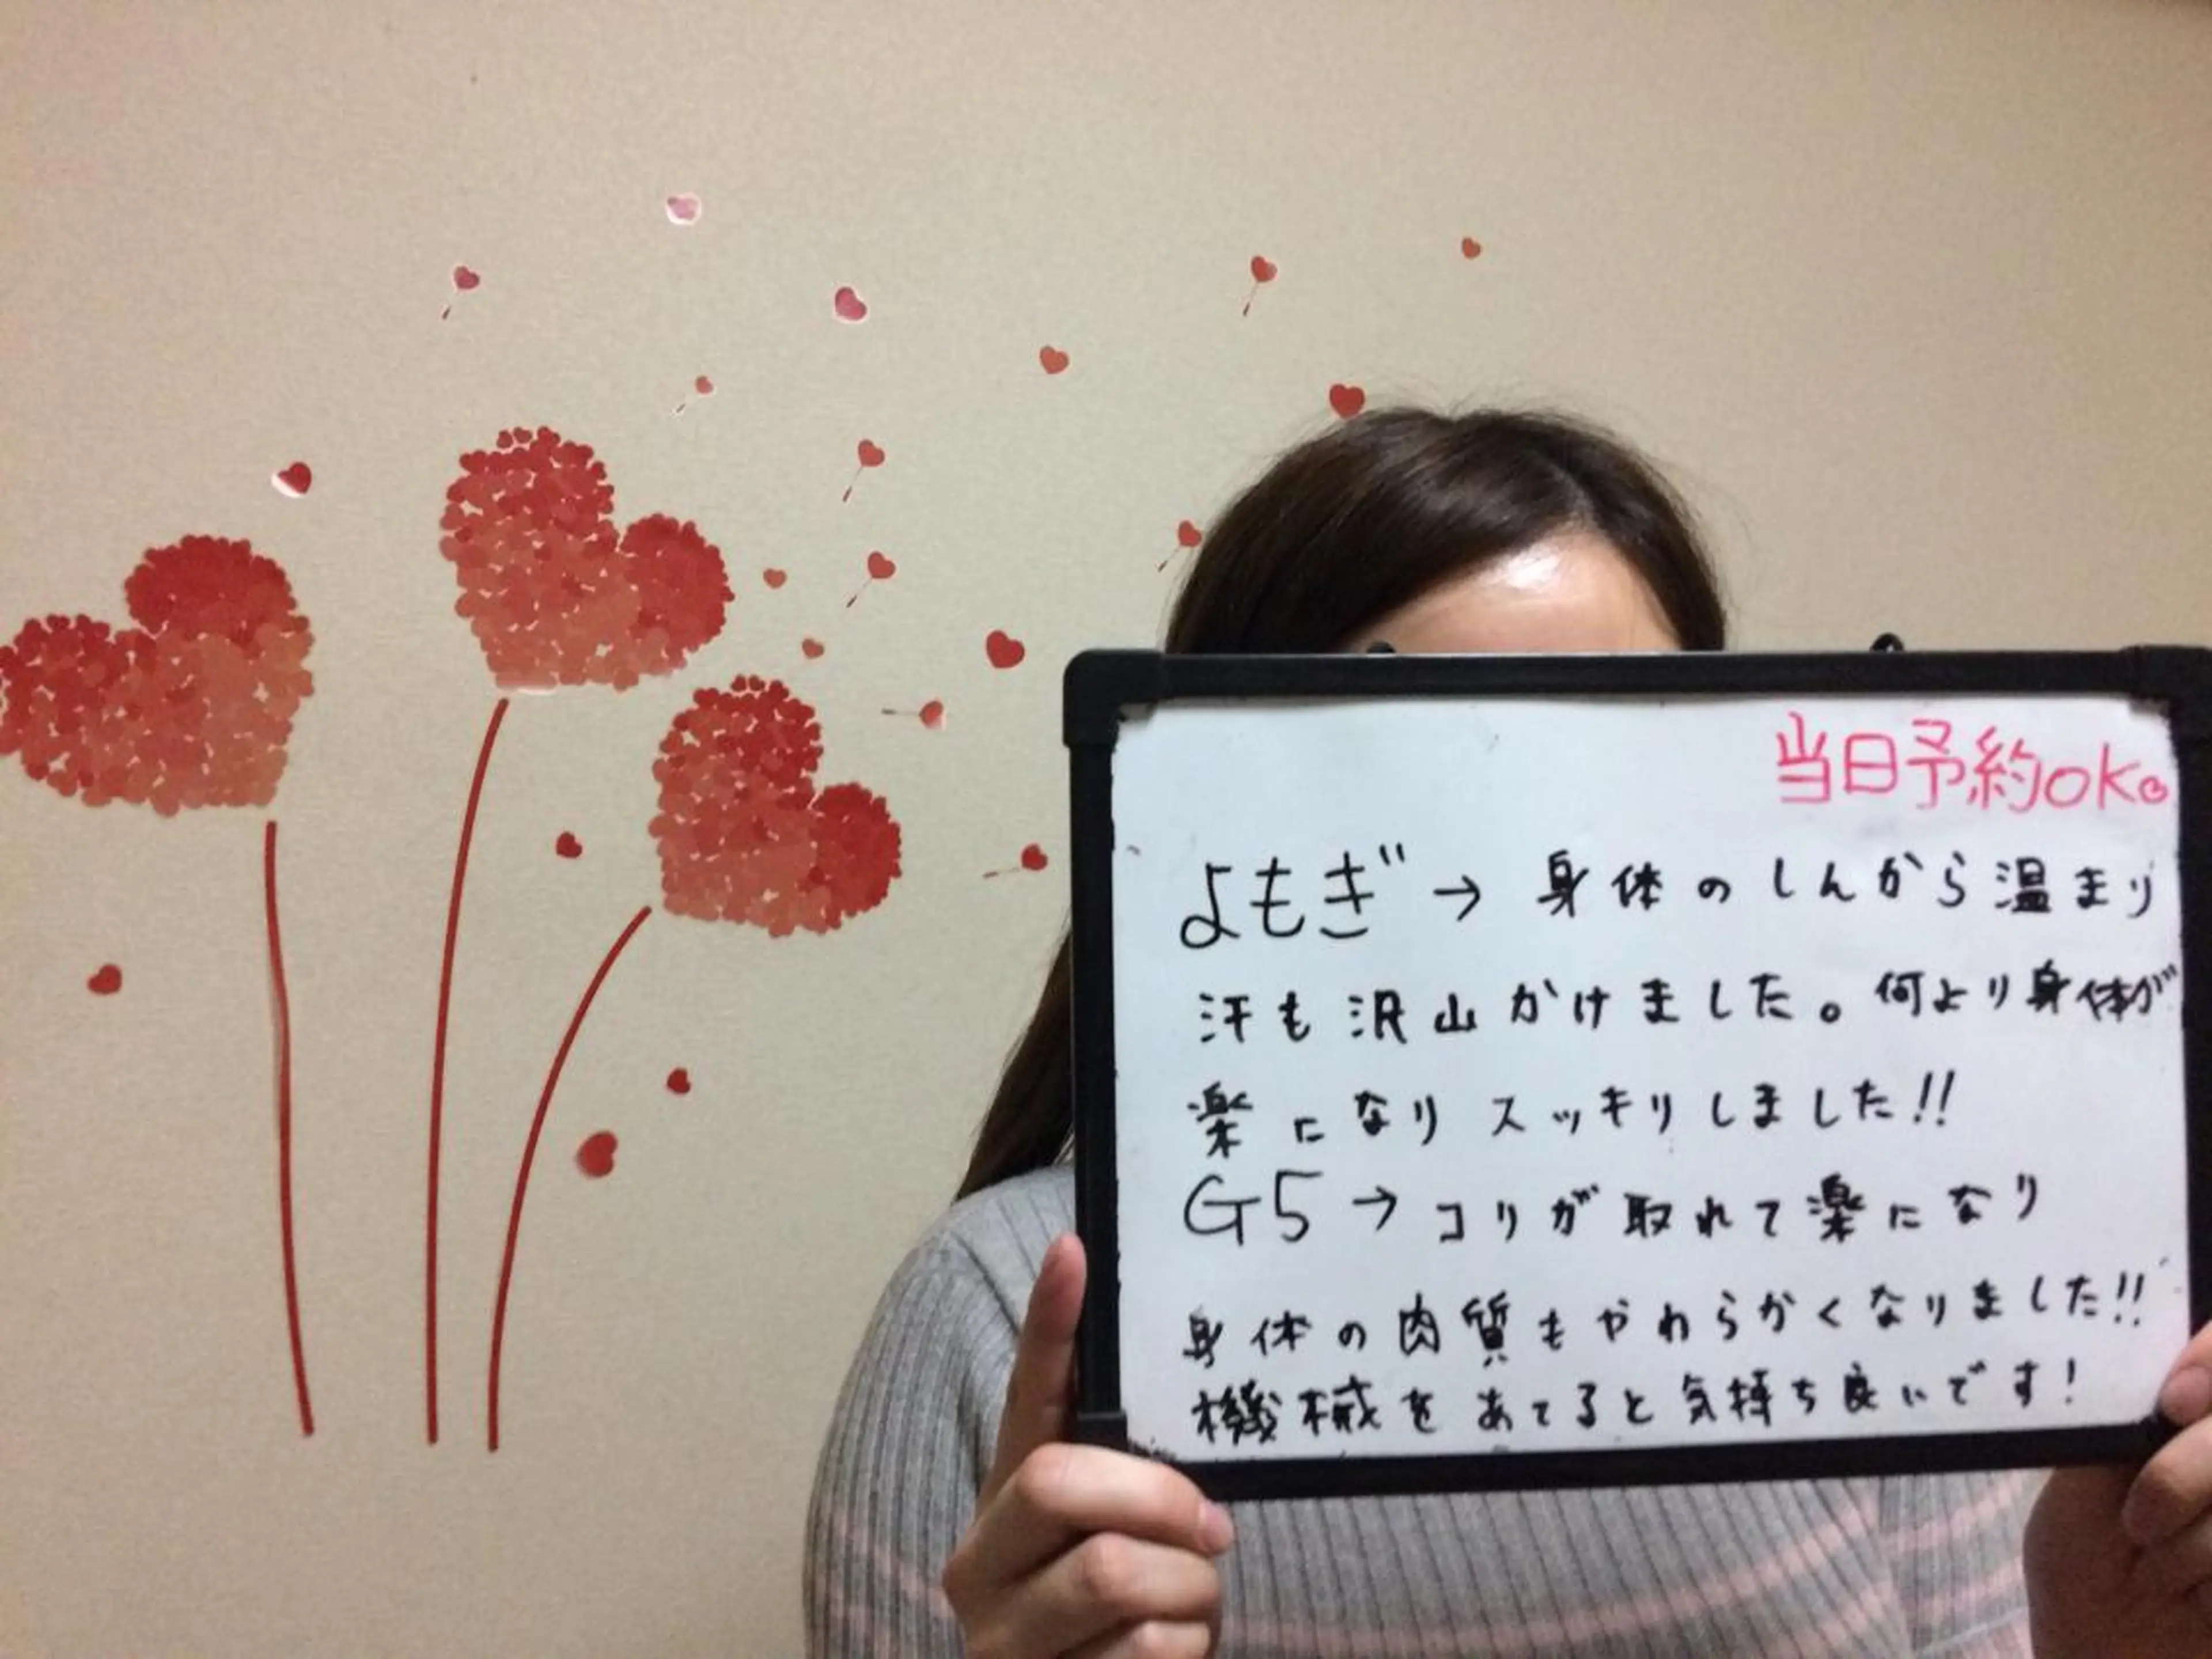 当日予約OK。
よもぎ→身体のしんから温まり
汗も沢山かけました。何より身体が
楽になりスッキリしました!!
G5→コリが取れて楽になり
身体の肉質もやわらかくなりました!!
機械をあてると気持ち良いです!